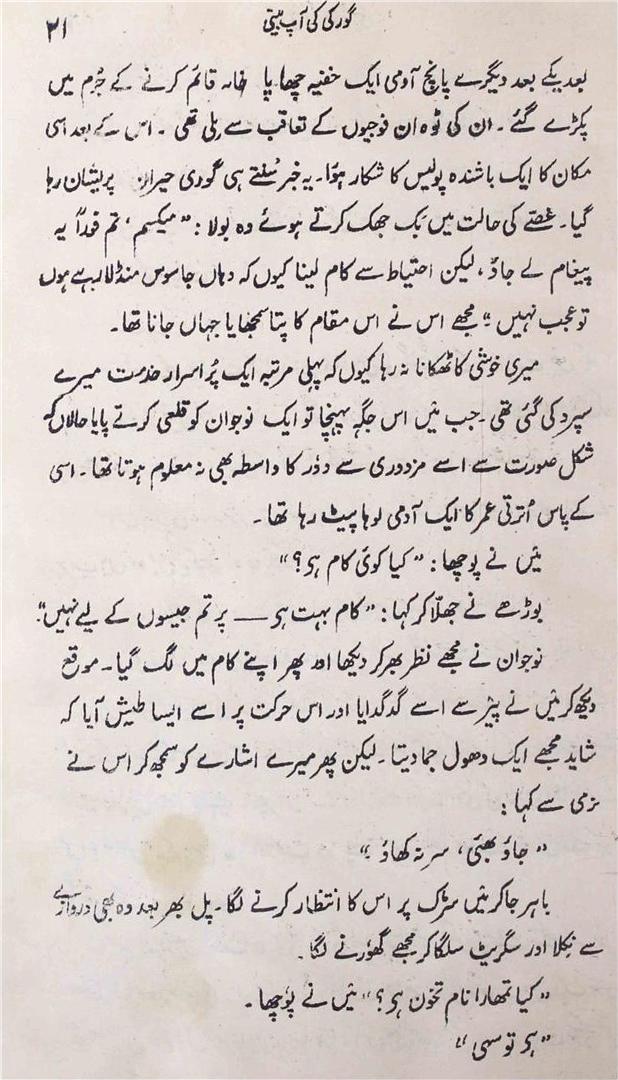 گورکی کی آپ بیتی
۲۱
بعد یکے بعد دیگرے پانچ آدمی ایک خفیہ چھاپا خانہ قائم کرنے کے جُرم میں
پکڑے گئے ۔ ان کی ٹوہ ان فوجیوں کے تعاقب سے ملی تھی ۔ اس کے بعد اسی
مکان کا ایک باشندہ پولیس کا شکار ہوُا۔ یہ خبر سُنتے ہی گوری حیران پریشان رہا
گیا۔ غصّے کی حالت میں بک جھک کرتے ہوئے وہ بولا : ” میکسم ، تم فوراً یہ
پیغام لے جاؤ ، لیکن احتیاط سے کام لینا کیوں کہ وہاں جاسوس منڈلا رہے ہوں
تو عجب نہیں “ مجھے اس نے اس مقام کا پتا سمجھایا جہاں جانا تھا۔
میری خوشی کا ٹھکانا نہ رہا کیوں کہ پہلی مرتبہ ایک پُر اسرار خدمت میرے
سپرد کی گئی تھی۔ جب میَں اس جگہ پہنچا تو ایک نوجوان کو قلعی کرتے پایا حالاں کہ
شکل صورت سے اسے مزدوری سے دوُر کا واسطہ بھی نہ معلوم ہوتا تھا۔ اسی
کے پاس اُترتی عمر کا ایک آدمی لوہا پیٹ رہا تھا۔
میَں نے پوچھا : ” کیا کوئی کام ہی؟ “
بوڑھے نے جھلّا کر کہا : ” کام بہت ہی —— پر تم جیسوں کے لیے نہیں “
نوجوان نے مجھے نظر بھر کر دیکھا اور پھر اپنے کام میں لگ گیا۔ موقع
دیکھ کر میَں نے پیَر سے اسے گدگدایا اور اس حرکت پر اسے ایسا طیش آیا کہ
شاید مجھے ایک دھول جما دیتا۔ لیکن پھر میرے اشارے کو سمجھ کر اس نے
نرمی سے کہا :
” جاؤ بھئی، سر نہ کھاؤ “
باہر جا کر میَں سڑک پر اس کا انتظار کرنے لگا۔ پل بھر بعد وہ بھی دروازے
سے نِکلا اور سگریٹ سلگا کر مجھے گھوُرنے لگا۔
” کیا تمھارا نام تخون ہی؟ “ میَں نے پوُچھا۔
” ہی تو سہی “